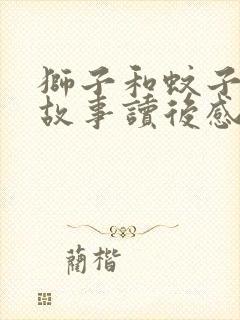 獅子和蚊子
故事讀後感
藺楷